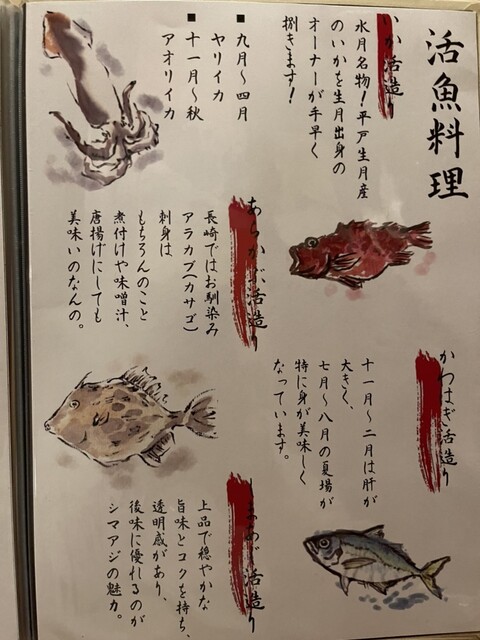 活魚料理
いか活造り
水月名物！平戸生月産
のいかを生月出身の
オーナーが手早く
捌きます！
■ 九月～四月
ヤリイカ
■ 十一月～秋
アオリイカ
あらかぶ活造り
長崎ではお馴染み
アラカブ(カサゴ)
刺身は
もちろんのこと
煮付けや味噌汁、
唐揚げにしても
美味いのなんの。
かわはぎ活造り
十一月～二月は肝が
大きく、
七月～八月の夏場が
特に身が美味しく
なっています。
しまあじ活造り
上品で穏やかな
旨味とコクを持ち、
透明感があり、
後味に優れるのが
シマアジの魅力。